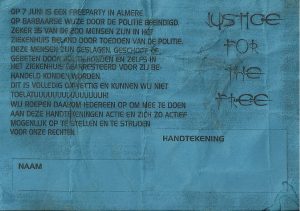 OP 7 JUNI IS EEN FREEPARTY IN ALMERE
OP BARBAARSE WIJZE DOOR DE POLITIE BEEINDIGD.
ZEKER 35 VAN DE 200 MENSEN ZIJN IN HET
ZIEKENHUIS BELAND DOOR TOEDOEN VAN DE POLITIE.
DEZE MENSEN ZIJN GESLAGEN, GESCHOPT,
GEBETEN DOOR HONDEN EN ZELFS IN
HET ZIEKENHUIS GEARRESTEERD VOOR ZIJ BE-
HANDELD KONDEN WORDEN.
DIT IS VOLLEDIG ONWETTIG EN KUNNEN WIJ NIET
WIJ ROEPEN DAAROM IEDEREEN OP OM MEE TE DOEN
AAN DEZE HANDTEKENINGEN ACTIE EN ZICH ZO ACTIEF
MOGELIJK OP TE STELLEN EN TE STRIJDEN
VOOR ONZE RECHTEN.
HANDTEKENING
NAAM
JUSTICE
FOR
THE
FREE